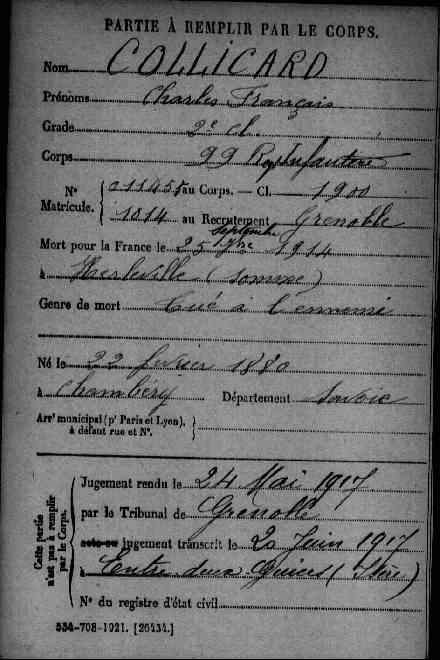 PARTIE À REMPLIR PAR LE CORPS.
Nom COLLICARD
Prénoms Charles François
Grade 2e cl.
Corps 99 Rgt Infanterie
N° Matricule. 011455 au Corps. — Cl. 1900
1014 au Recrutement Grenoble
septembre
Mort pour la France le 25 7bre 1914
à Herleville (Somme)
Genre de mort Tué à l'ennemi
Né le 22 février 1880
à Chambéry Département Savoie
Arrt municipal (pr Paris et Lyon), à défaut rue et N°.
Cette partie n'est pas à remplir par le Corps.
Jugement rendu le 24 Mai 1917
par le Tribunal de Grenoble
acte ou jugement transcrit le 20 Juin 1917
à Entre deux Guiers (Isère)
N° du registre d'état civil
534-708-1921. [26434.]